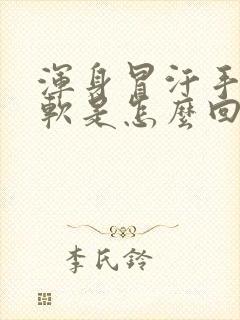 渾身冒汗手
軟是怎麼回
李氏鈴